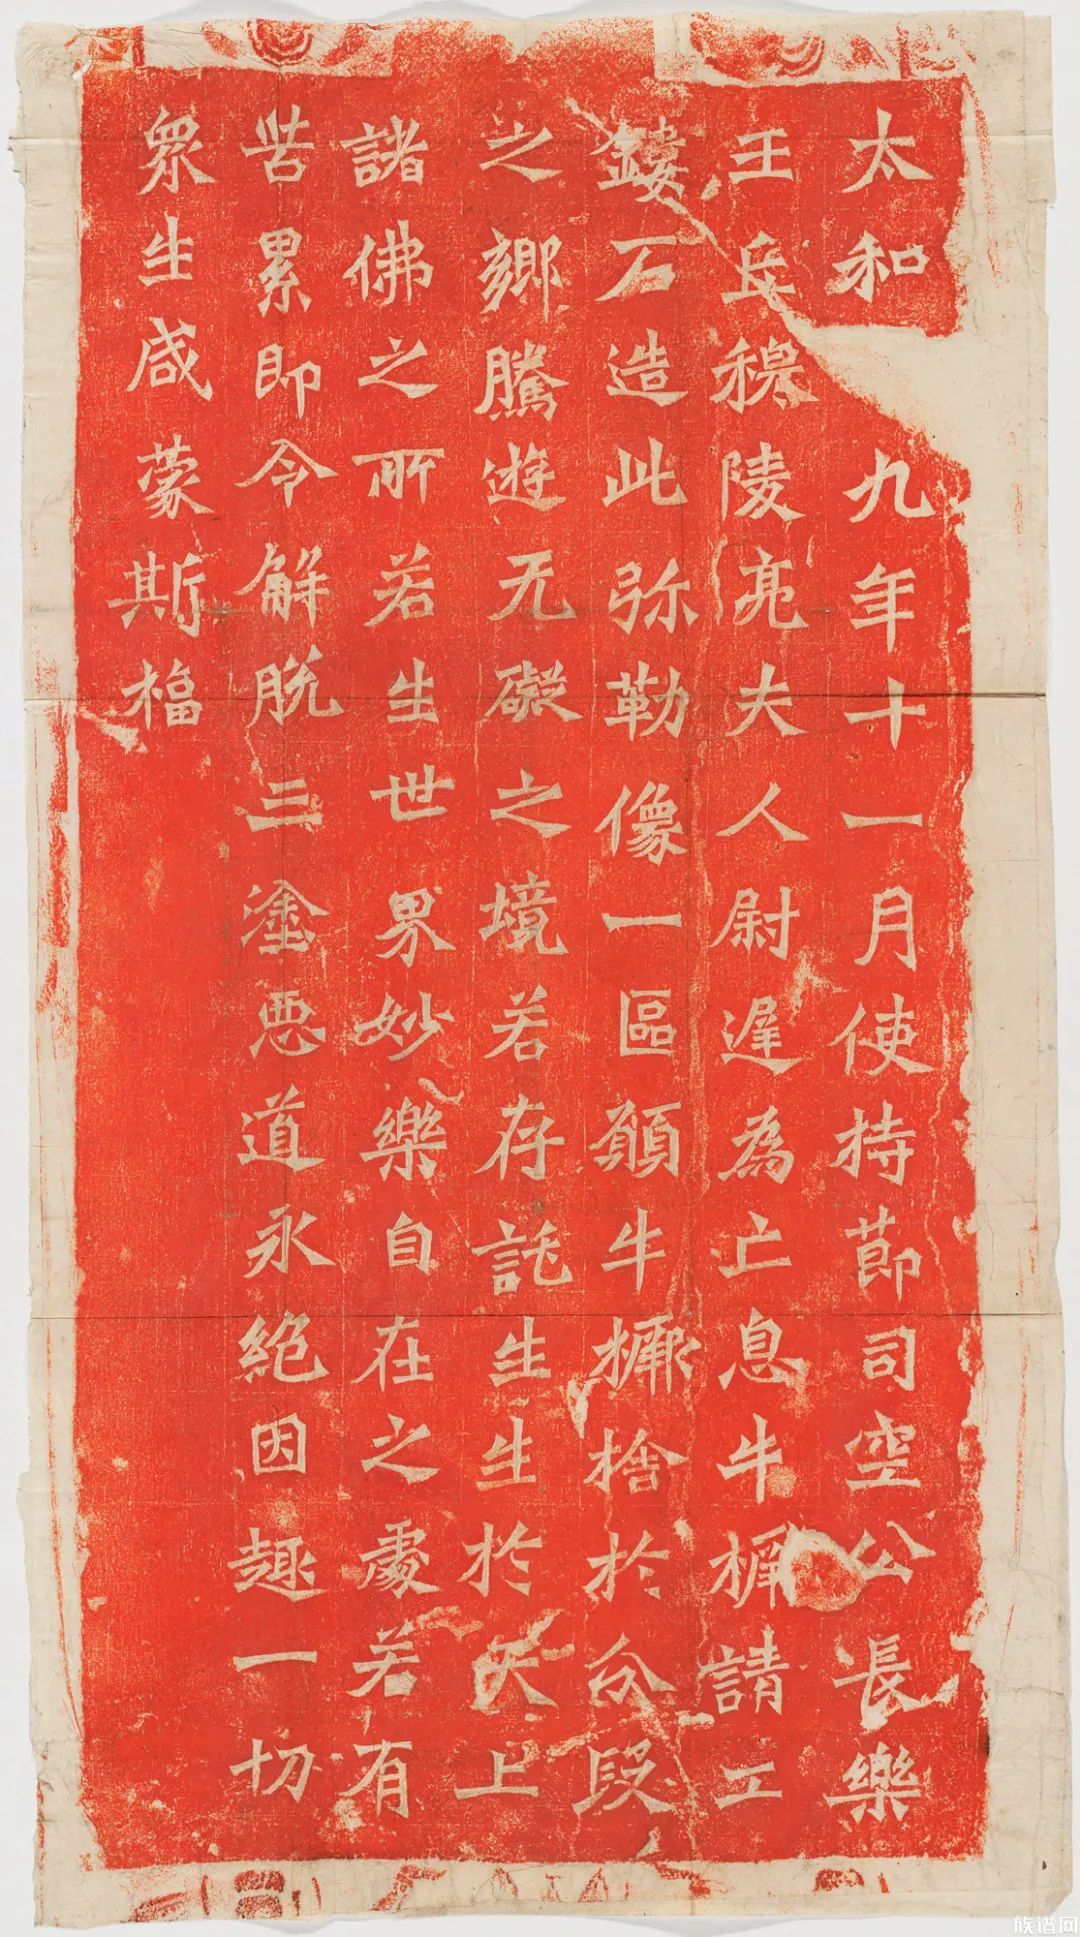 太和九年十一月使持節司空公長樂
王丘穆陵亮夫人尉遲為亡息牛橛請工
鏤石造此弥勒像一區願牛橛捨於分段
之鄉騰遊无礙之境若存託生生於天上
諸佛之所若生世界妙樂自在之處若有
苦累即令解脫三塗惡道永絕因趣一切
眾生咸蒙斯福
族谱网